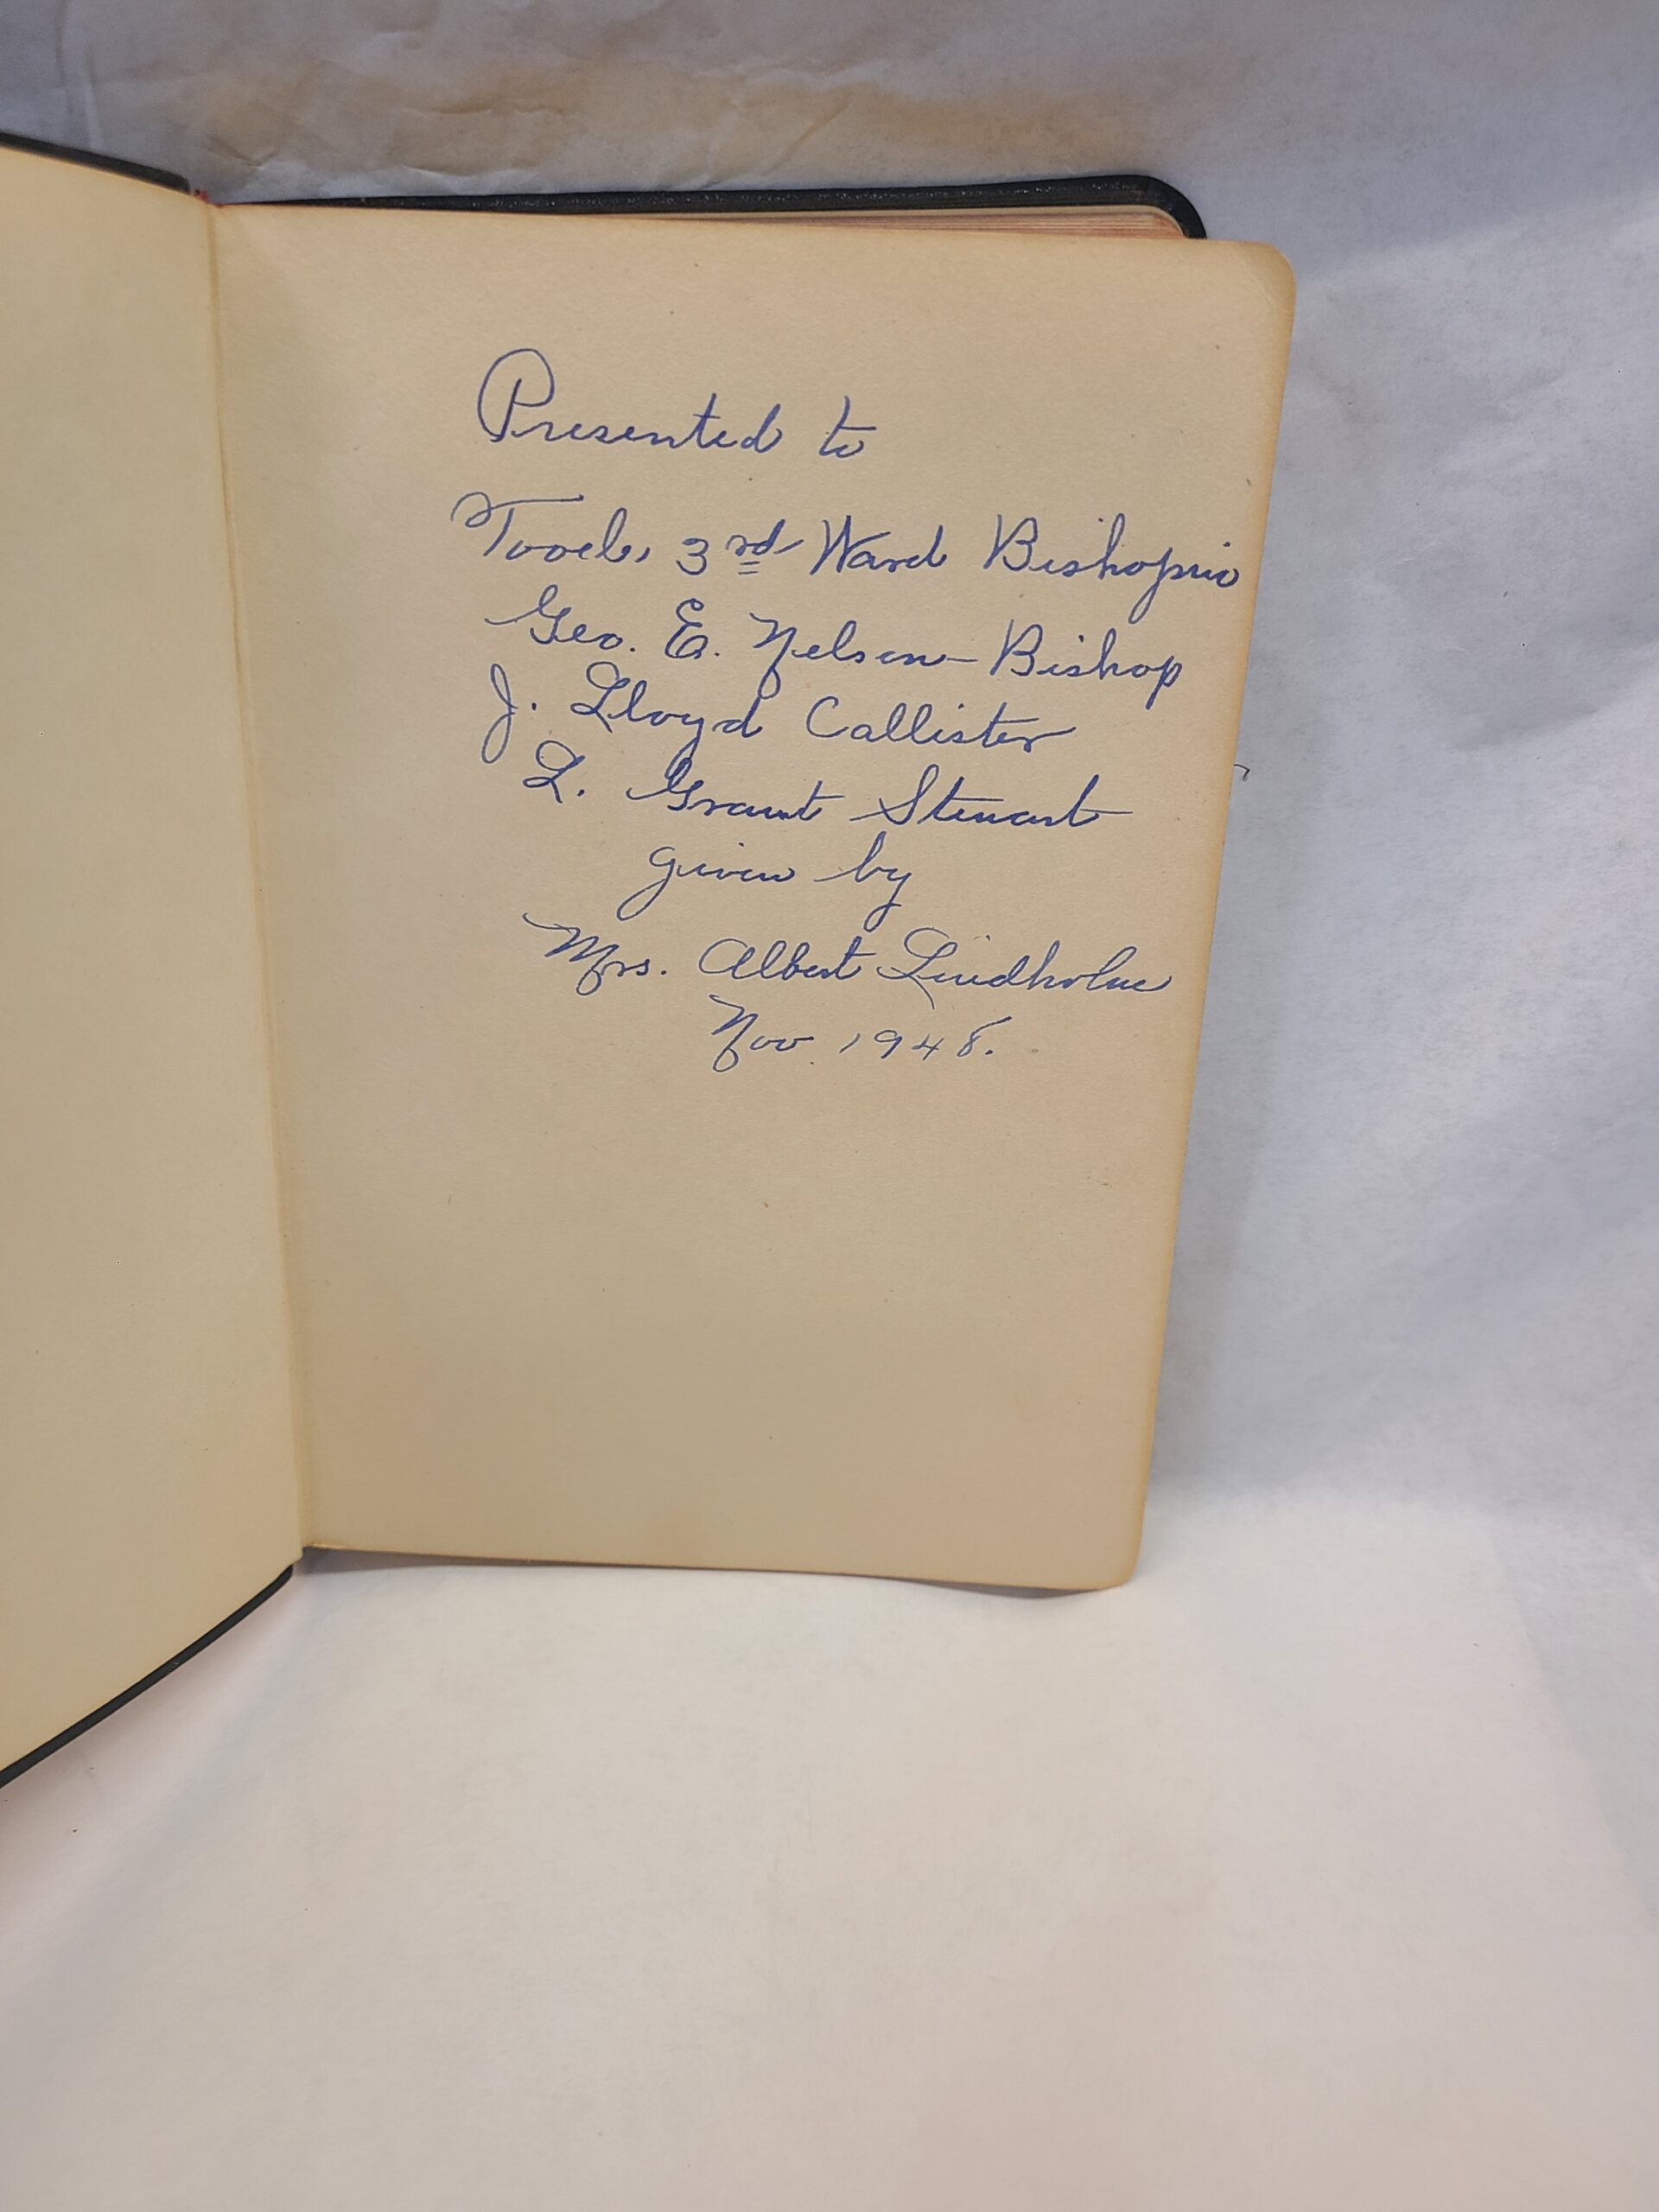 Presented to
Tooele, 3rd Ward Bishopric
Geo. E. Nelson - Bishop
J. Lloyd Callister
L. Grant Stewart
given by
Mrs. Albert Lindholm
Nov. 1948.